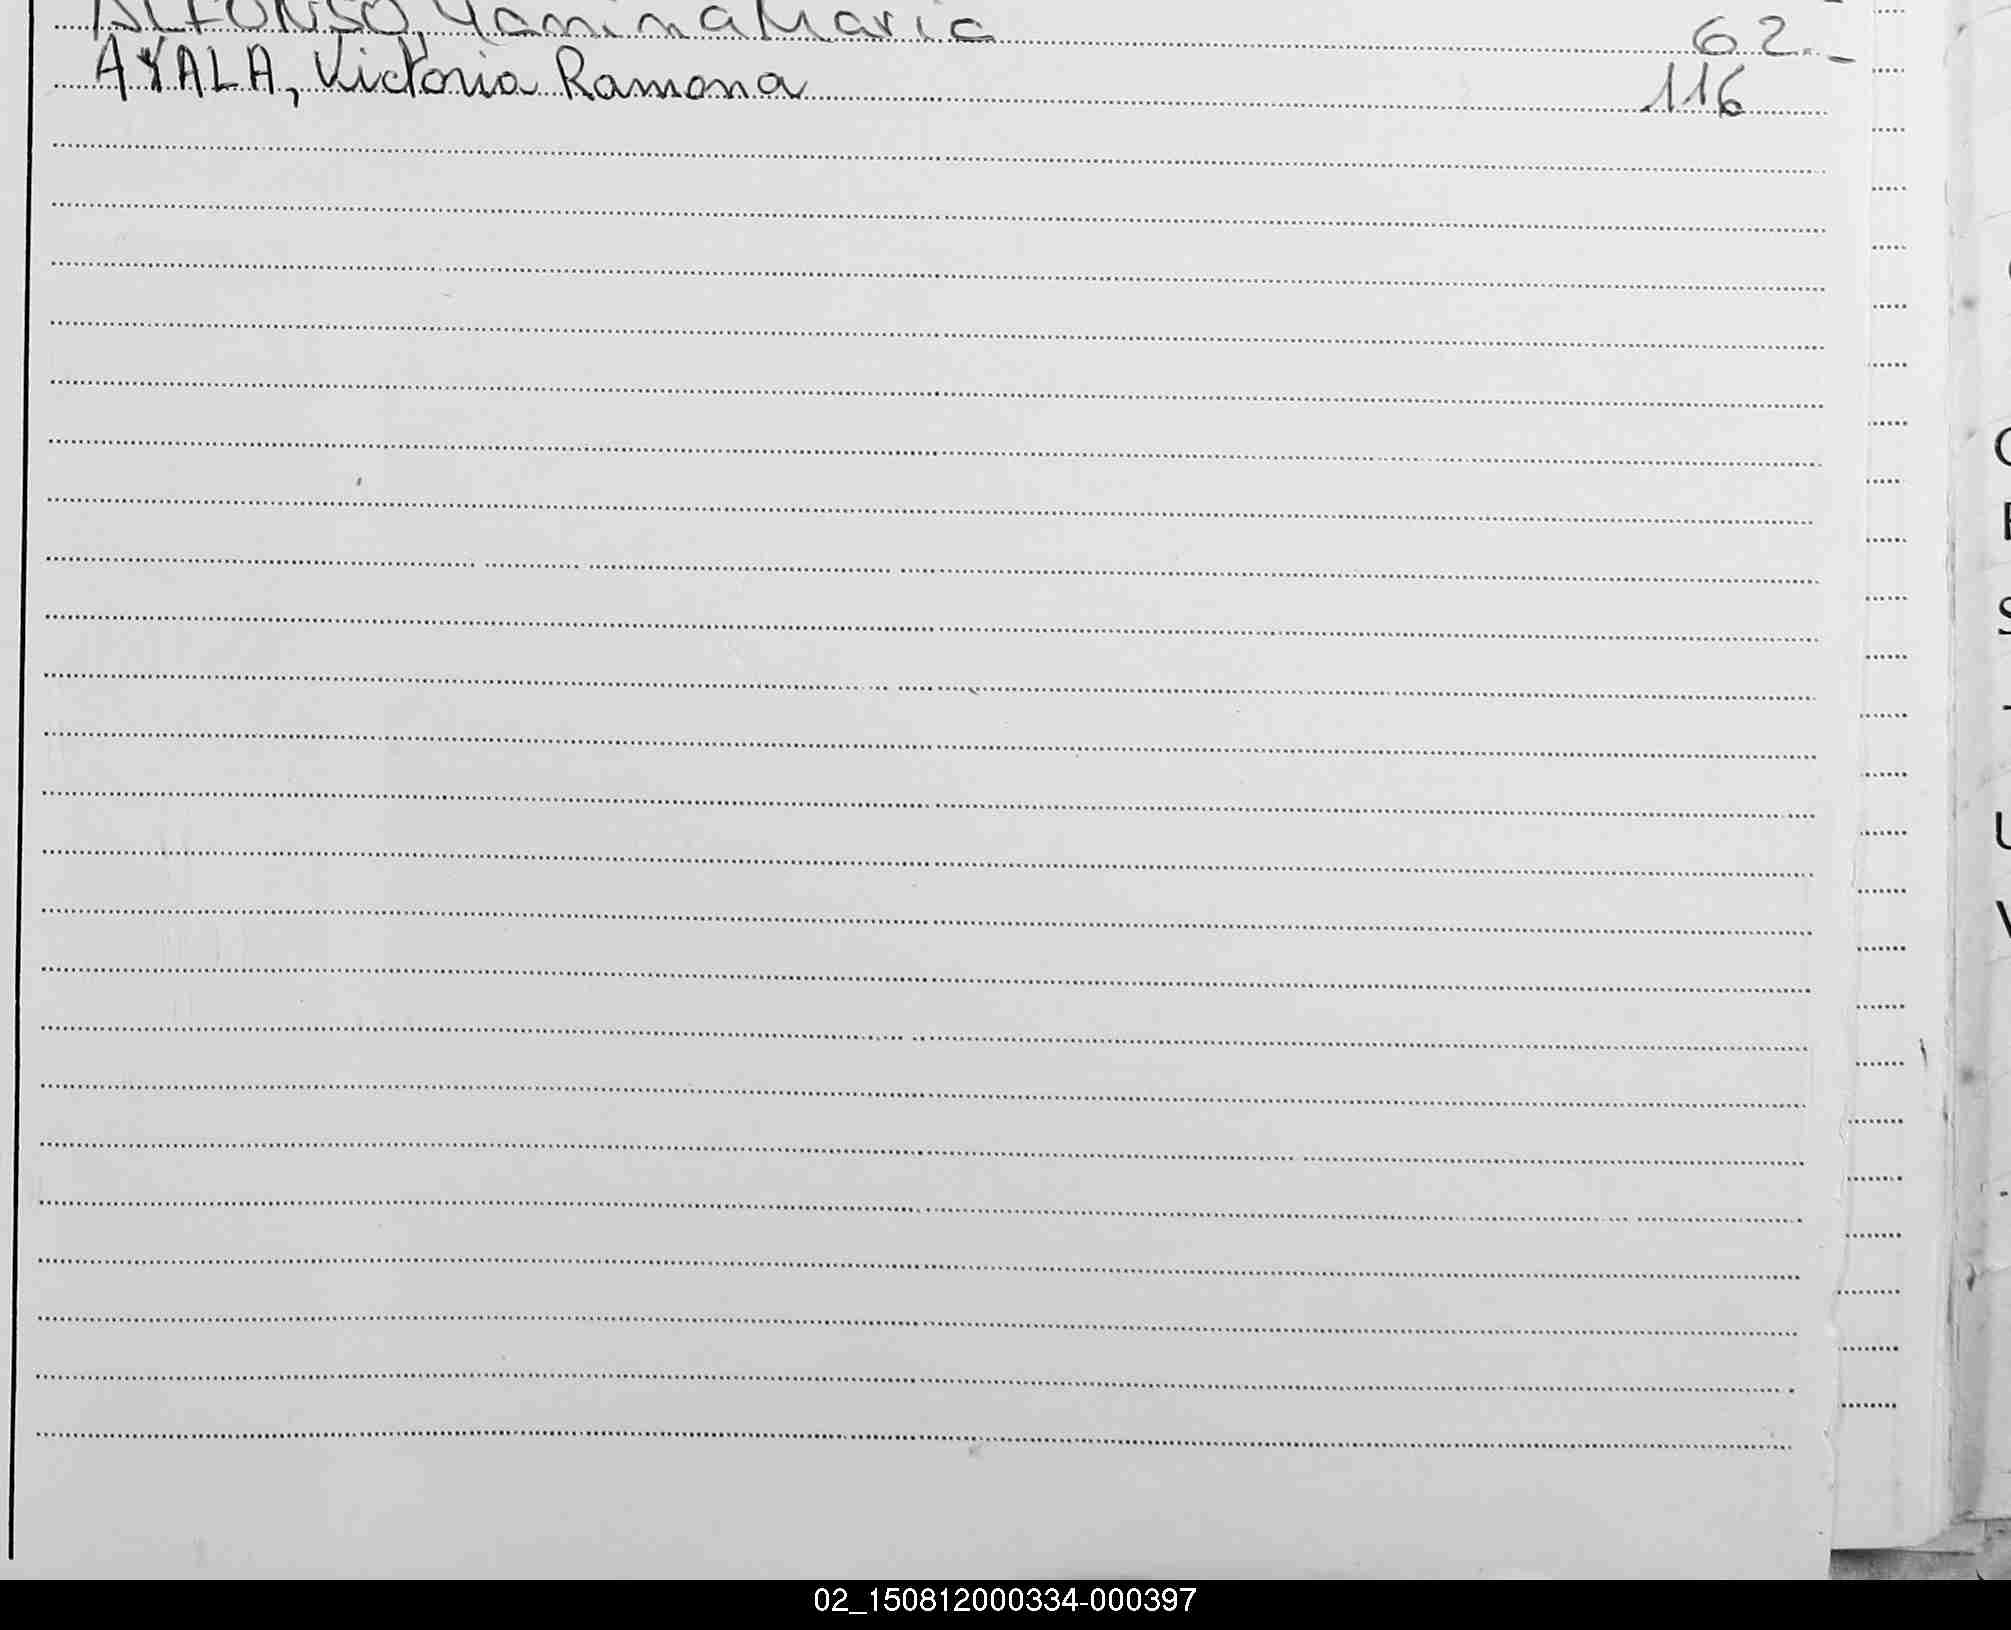 ALFONSO, Yamina Maria 62.-
AYALA, Victoria Ramona 116
02_150812000334-000397